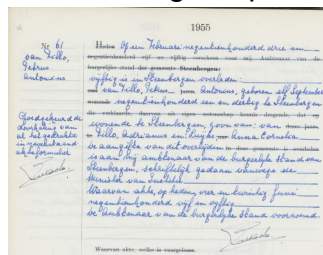 1955
Nr. 61
van Tillo,
Petrus
Antonius
Goedgekeurd de
doorhaling van
al het gedrukte
in nevenstaand
akteformulier.
Heden Op een Februari negentienhonderd drie en
negentienhonderd vijf en vijftig verscheen voor mij Ambtenaar van de
burgerlijke stand der gemeente Steenbergen:
vijftig is in Steenbergen overleden:
van Tillo, Petrus Antonius, geboren elf September
negentienhonderd een en dertig te Steenbergen
wonende te Steenbergen, zoon van: van
Tillo, Adrianus en Anna Cornelia.
De aangifte van dit overlijden
is aan mij ambtenaar van de burgerlijke stand van
Steenbergen, schriftelijk gedaan vanwege de
Minister van Justitie.
Waarvan akte, op heden vier en twintig Juni
negentienhonderd vijf en vijftig.
De Ambtenaar van de burgerlijke stand voornoemd.
Waarvan akte, welke is voorgelezen.